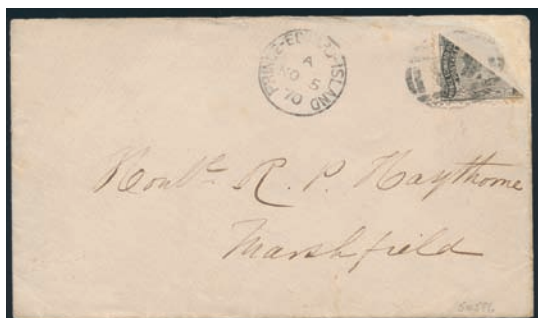 PRINCE-EDWARD-ISLAND
A
NO 5
70
Honble R. P. Haythorne
Marshfield